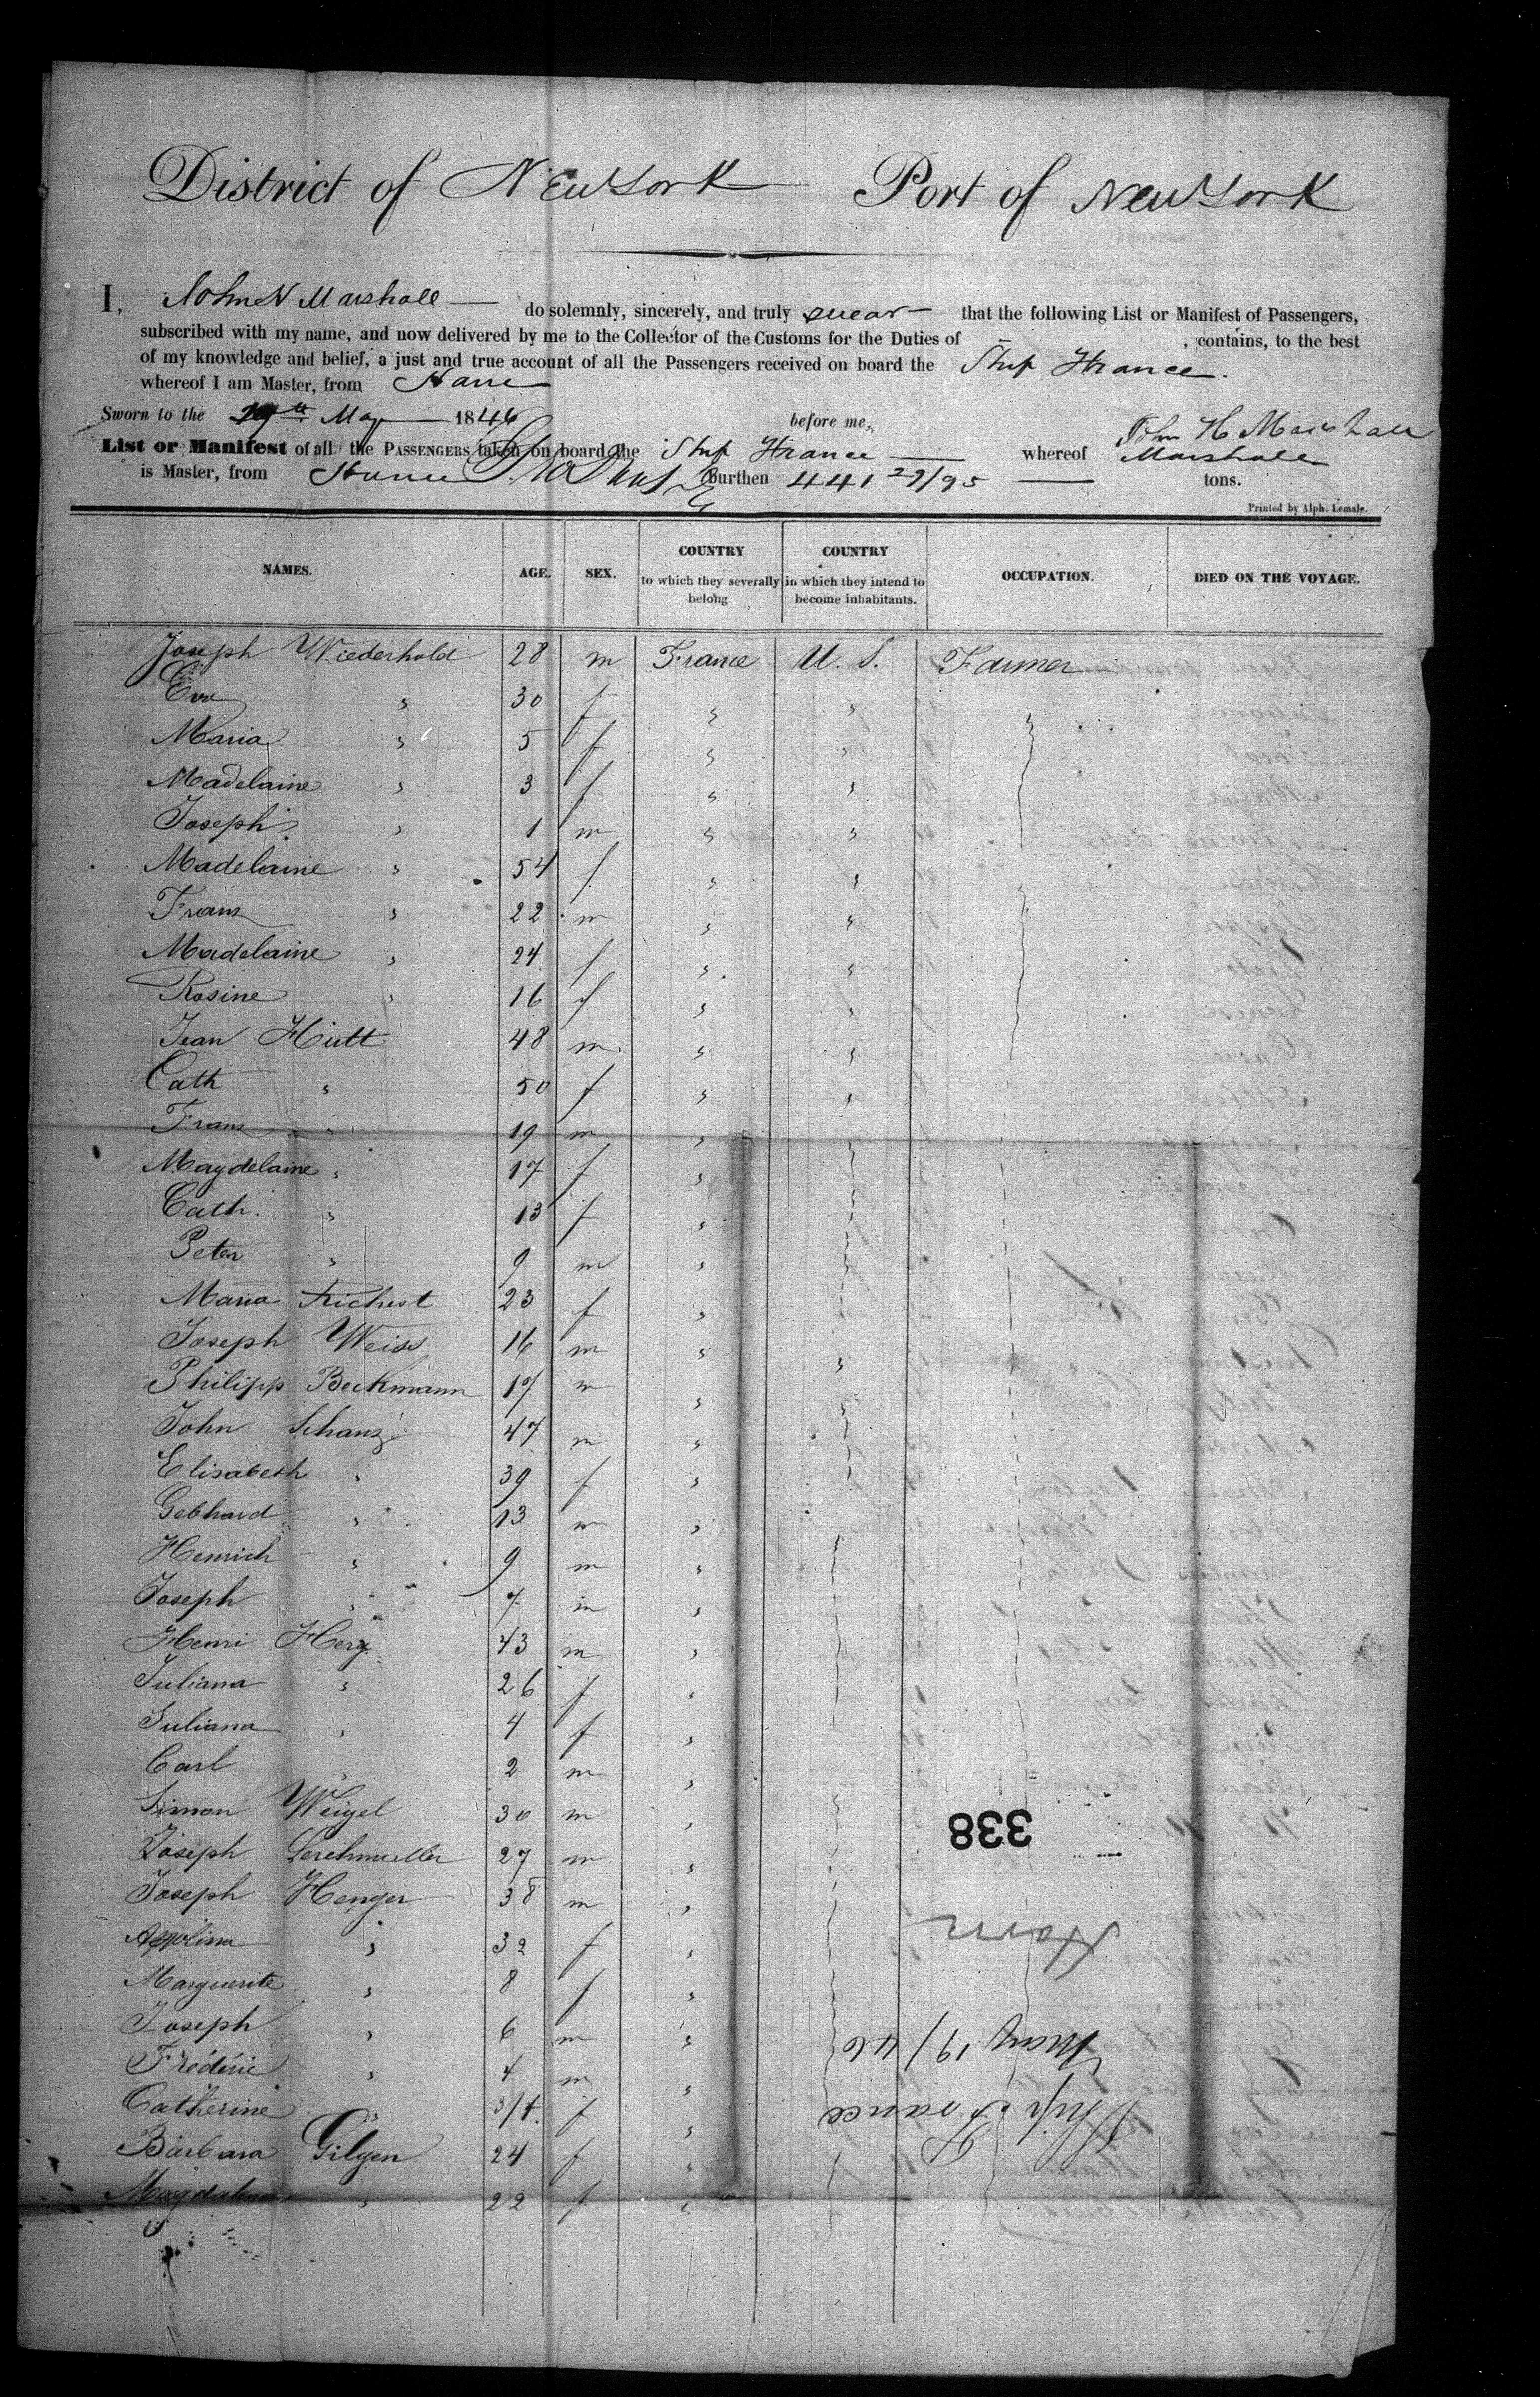 District of New York Port of New York
I, John N Marshall do solemnly, sincerely, and truly swear that the following List or Manifest of Passengers,
subscribed with my name, and now delivered by me to the Collector of the Customs for the Duties of , contains, to the best
of my knowledge and belief, a just and true account of all the Passengers received on board the Ship France.
whereof I am Master, from Havre
Sworn to the 19th May 1846 before me, John H Marshall
List or Manifest of all the PASSENGERS taken on board the Ship France whereof Marshall
is Master, from Havre burthen 441 29/95 tons.
Printed by Alph. Lemale.
NAMES. AGE. SEX. COUNTRY to which they severally belong COUNTRY in which they intend to become inhabitants. OCCUPATION. DIED ON THE VOYAGE.
Joseph Wiederhold 28 m France U. S. Farmer
Eva " 30 f " " "
Maria " 5 f " "
Madelaine " 3 f " "
Joseph " 1 m " "
Madelaine " 54 f " "
Franz " 22 m " "
Madelaine " 24 f " "
Rosine " 16 f " "
Jean Hutt 48 m " "
Cath " 50 f " "
Franz " 19 m "
Magdelaine " 17 f "
Cath. " 13 f "
Peter " 9 m "
Maria 23 f "
Joseph Weiss 16 m " "
Philipp Beckmann 17 m " "
John Schanz 47 m "
Elisabeth " 39 f "
Gebhard " 13 m "
Henrich " 9 m "
Joseph " 7 m "
Henri Herg 43 m "
Juliana " 26 f "
Juliana " 4 f "
Carl " 2 m "
Simon Weigel 30 m "
Joseph Lerchmueller 27 m "
Joseph Henger 38 m "
Appolina " 32 f "
Marguerite " 8 f "
Joseph " 6 m "
Fréderic " 4 m "
Catherine " 3/4 f "
Barbara Gilgen 24 f "
Magdalena " 22 f "
338
Havre
May 19/46
Ship France